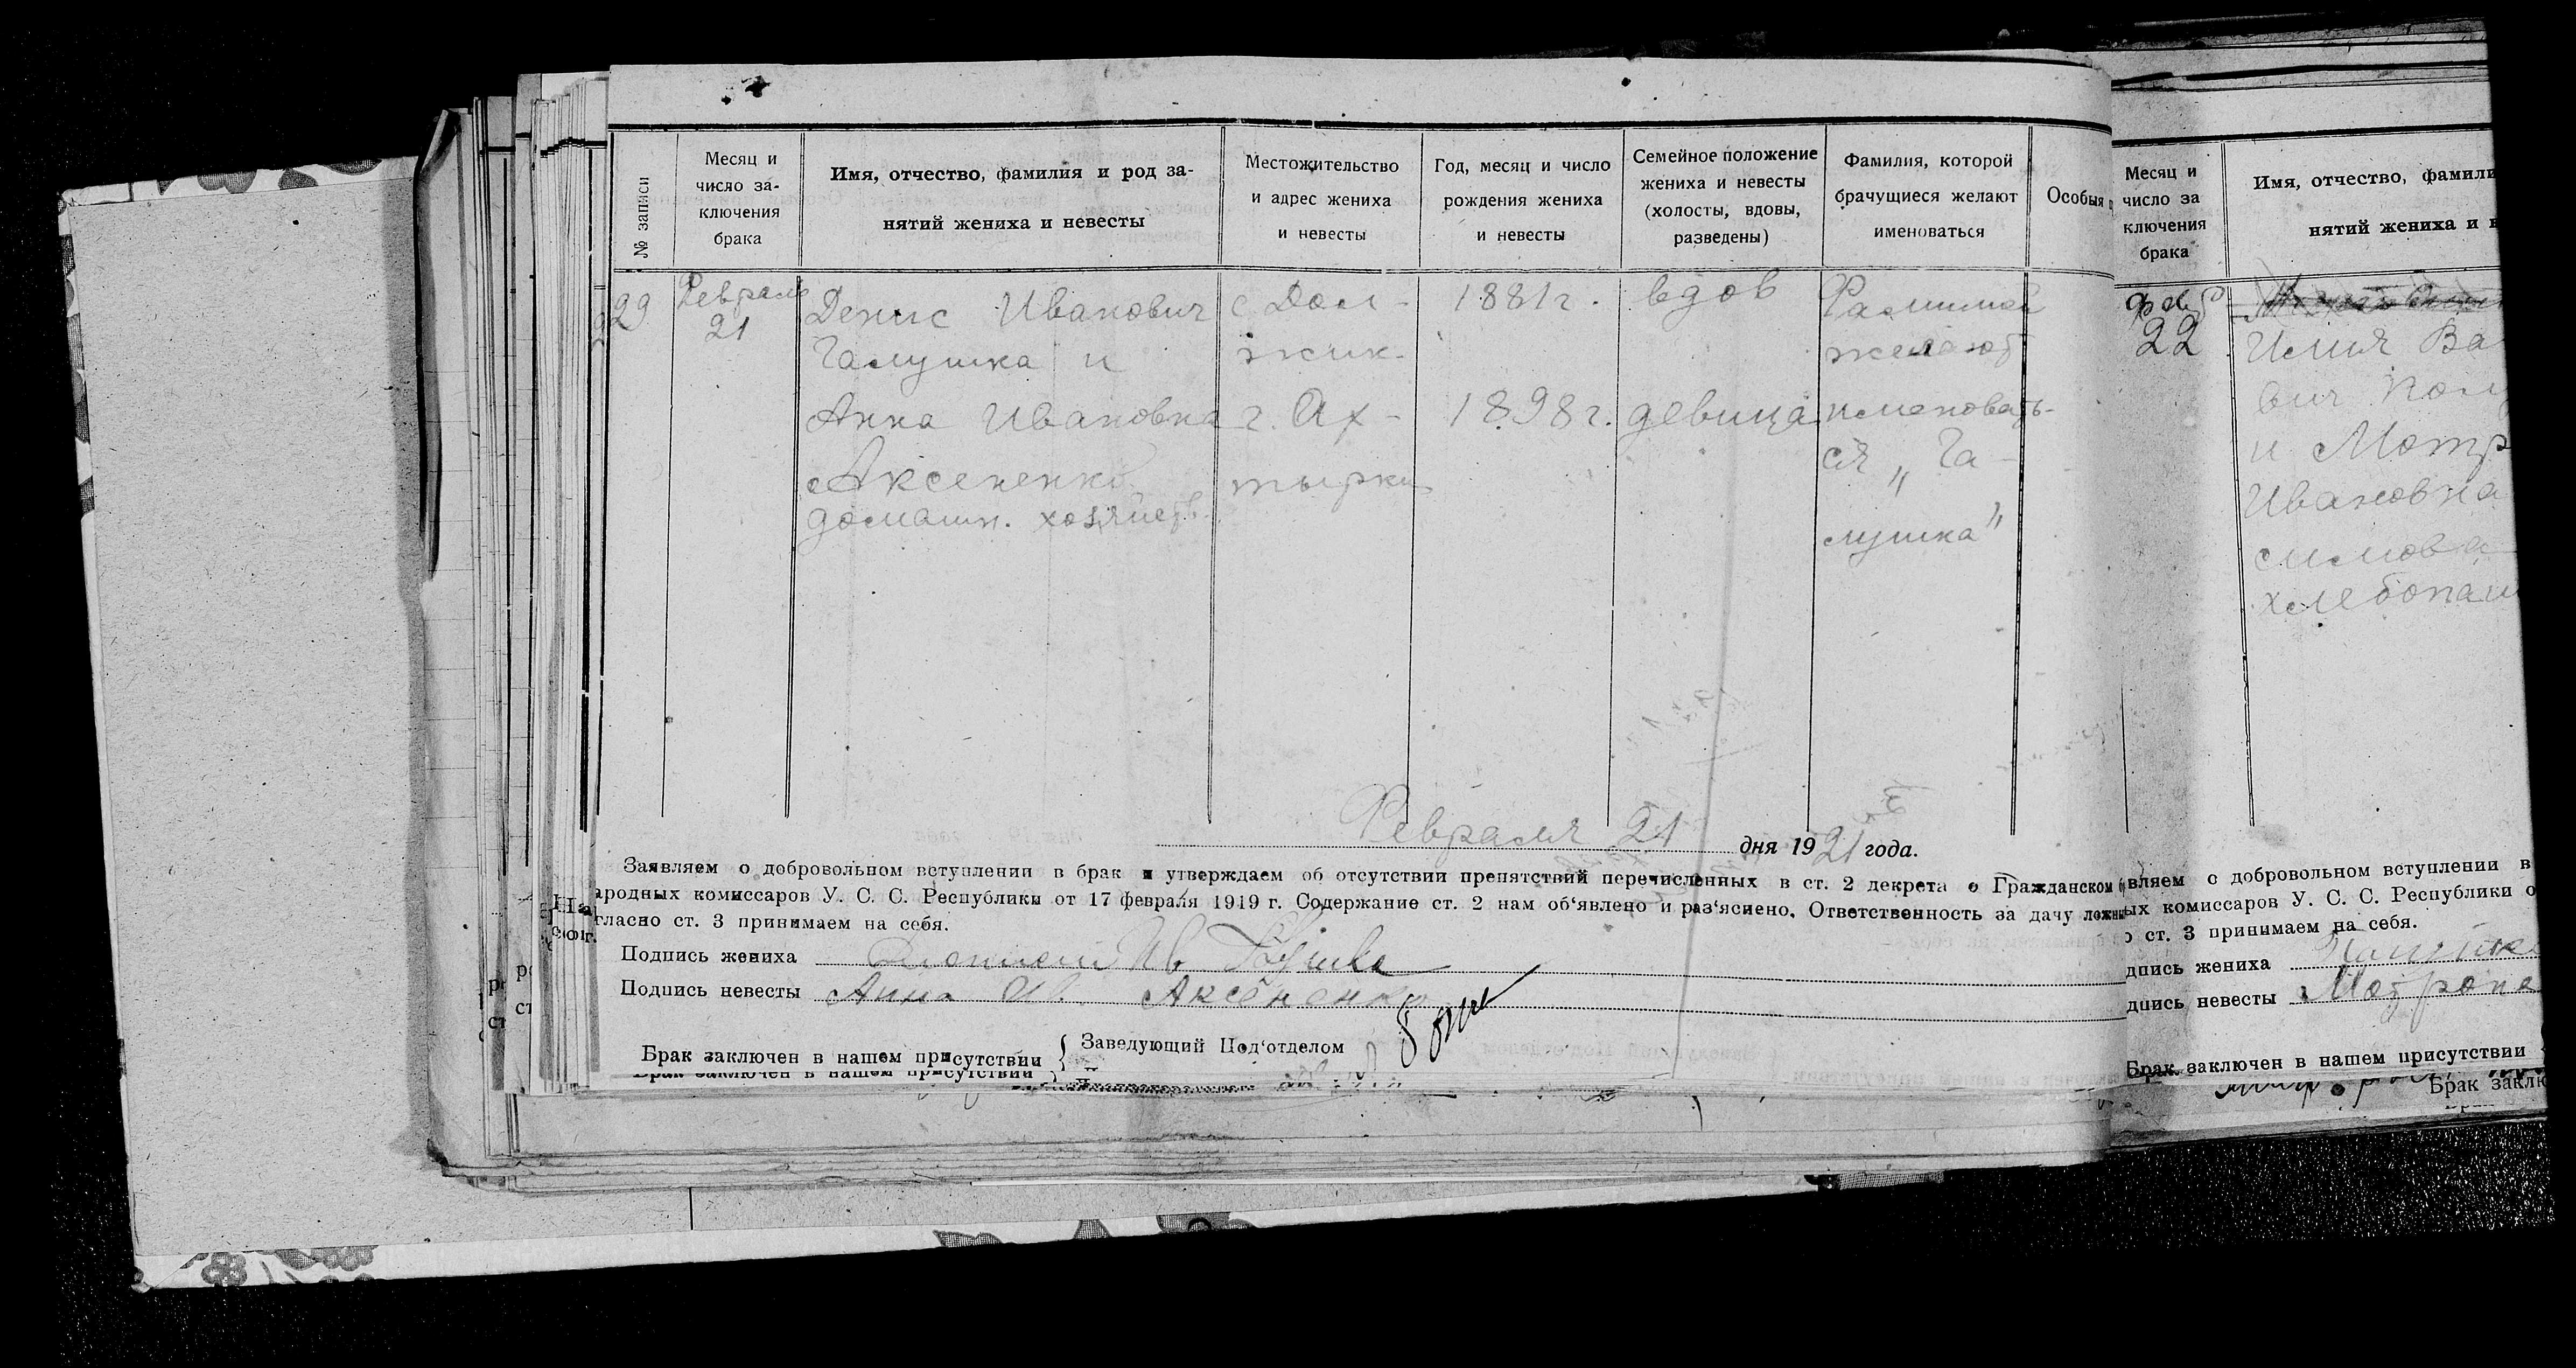 № записи
Месяц и
число за-
ключения
брака
Имя, отчество, фамилия и род за-
нятий жениха и невесты
Местожительство
и адрес жениха
и невесты
Год, месяц и число
рождения жениха
и невесты
Семейное положение
жениха и невесты
(холосты, вдовы,
разведены)
Фамилия, которой
брачущиеся желают
именоваться
Особыя
29
Февраль
21
Денис Иванович
Галушка и
Анна Ивановна
Аксененко
домашн. хозяйств.
с Дол-
жик.
г. Ах-
тырки
1881 г.
1898 г.
вдов
девица
Фамилией
желают
именовать-
ся „Га-
лушка"
Февраля 21 дня 1921 года.
Заявляем о добровольном вступлении в брак и утверждаем об отсутствии препятствий перечисленных в ст. 2 декрета о Гражданском
ародных комиссаров У. С. С. Республики от 17 февраля 1919 г. Содержание ст. 2 нам об'явлено и раз'яснено. Ответственность за дачу
гласно ст. 3 принимаем на себя.
Подпись жениха
Подпись невесты Анна Ив. Аксёненко
Брак заключен в нашем присутствии { Заведующий Под'отделом
Месяц и
число за
ключения
брака
Имя, отчество, фамили
нятий жениха и
фев
22
Илия Ва
вич
и Мотр
Ивановна
симова
хлебопаш
вляем о добровольном вступлении в
ых комиссаров У. С. С. Республики о
о ст. 3 принимаем на себя.
дпись жениха
дпись невесты Мотрона
Брак заключен в нашем присутствии
Брак заклю